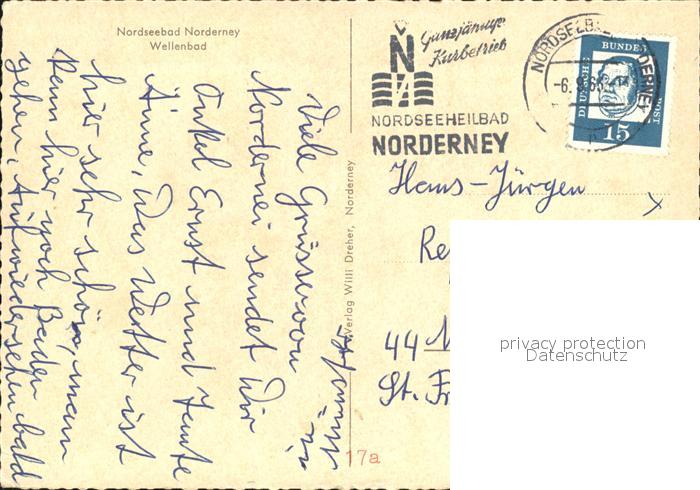 Nordseebad Norderney
Wellenbad
Viele Grüsse von
Nordernei sendet Dir
Onkel Ernst und Tante
Änne, Das Wetter ist
hier sehr schön, man
kann hier noch Baden
gehen, Aufwiedersehen bald
in
Verlag Willi Dreher, Norderney
17a
Ganzjährige
Kurbetrieb
N
NORDSEEHEILBAD
NORDERNEY
NORDSEEB
DERNEY
-6.9.63
DEUTSCHE
BUNDES
POST
15
Hans-Jürgen
Re
44 M
St. Fr
privacy protection
Datenschutz